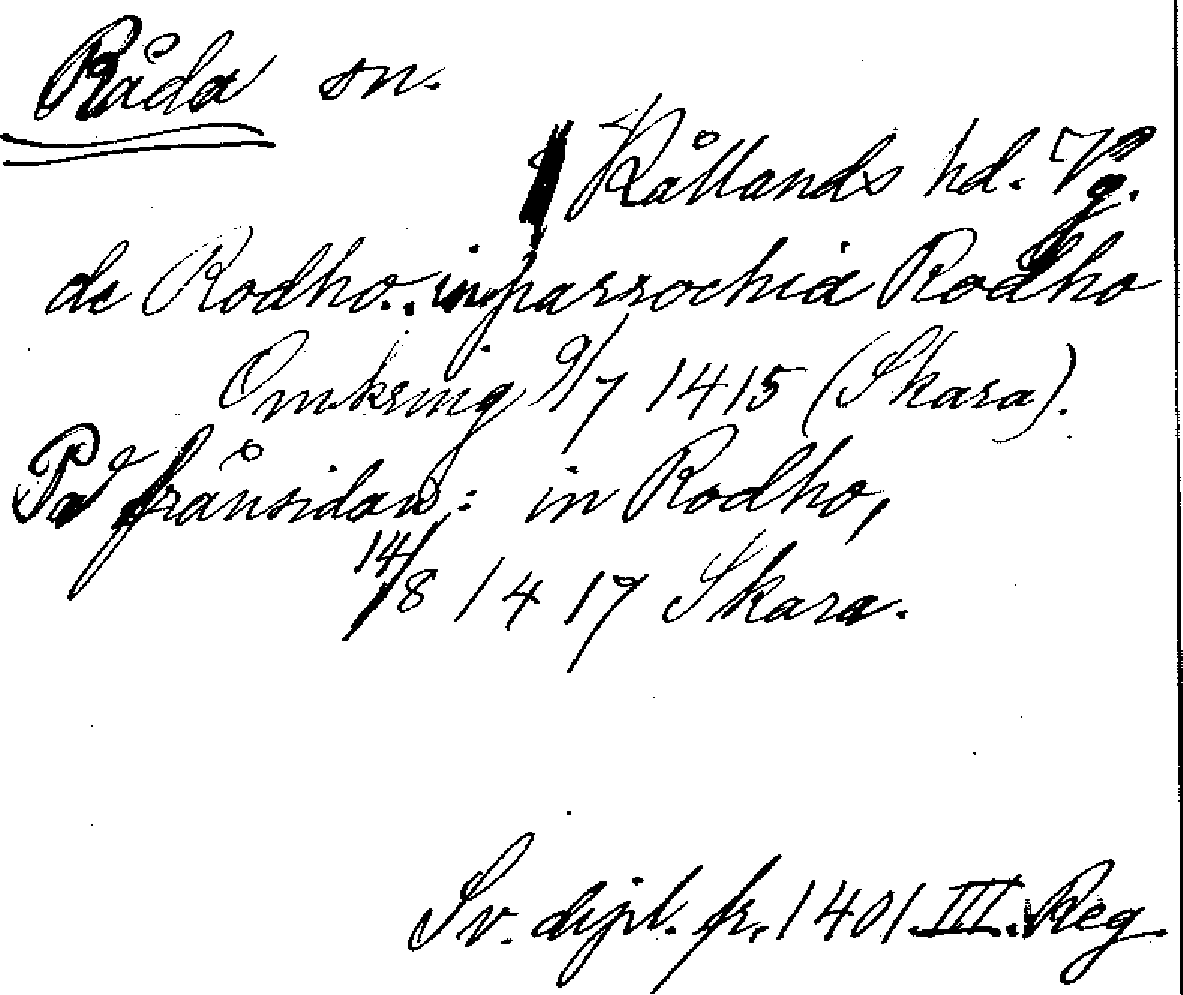 Råda sn.
Kållands hd. Vg.
de Rodho.. in parrochia Rodho
Omkring 9/7 1415 (Skara).
På frånsidan: in Rodho,
14/8 1417 Skara.
Sv. dipl. fr. 1401. III. Reg.